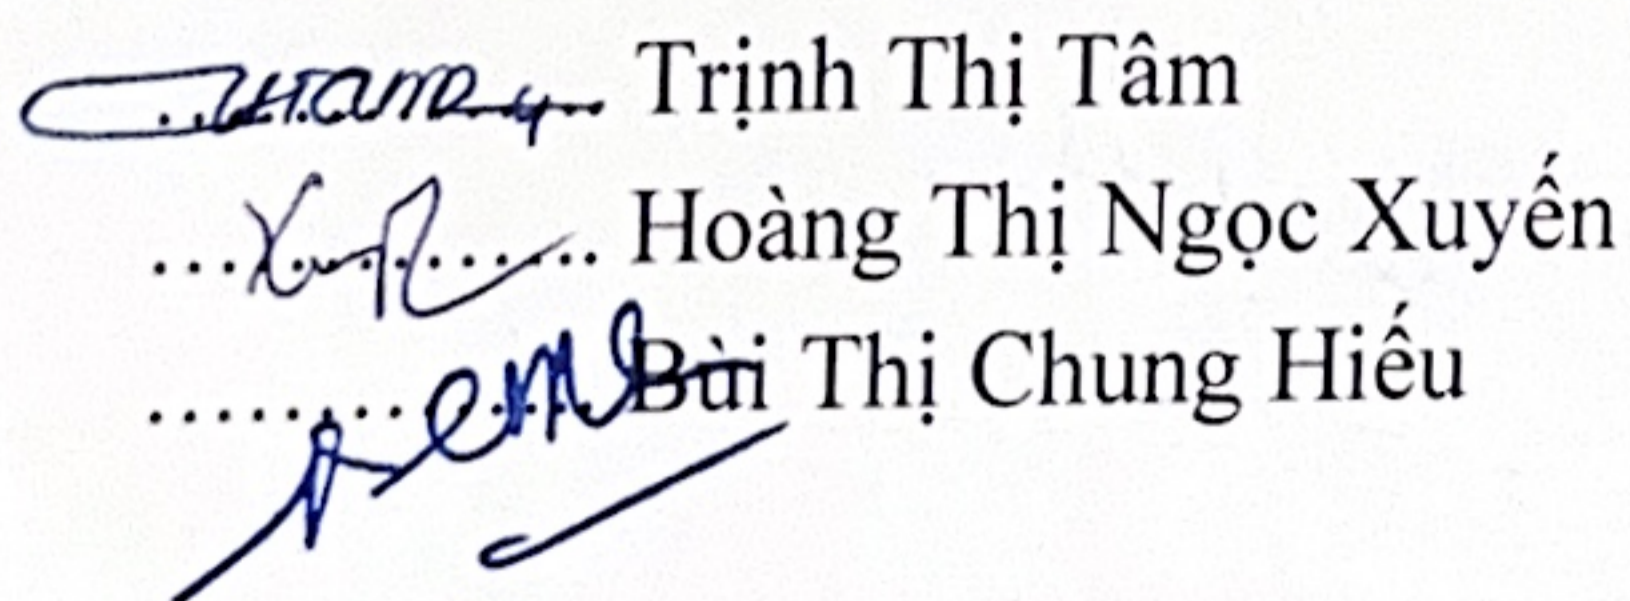 Trịnh Thị Tâm
Hoàng Thị Ngọc Xuyến
Bùi Thị Chung Hiếu